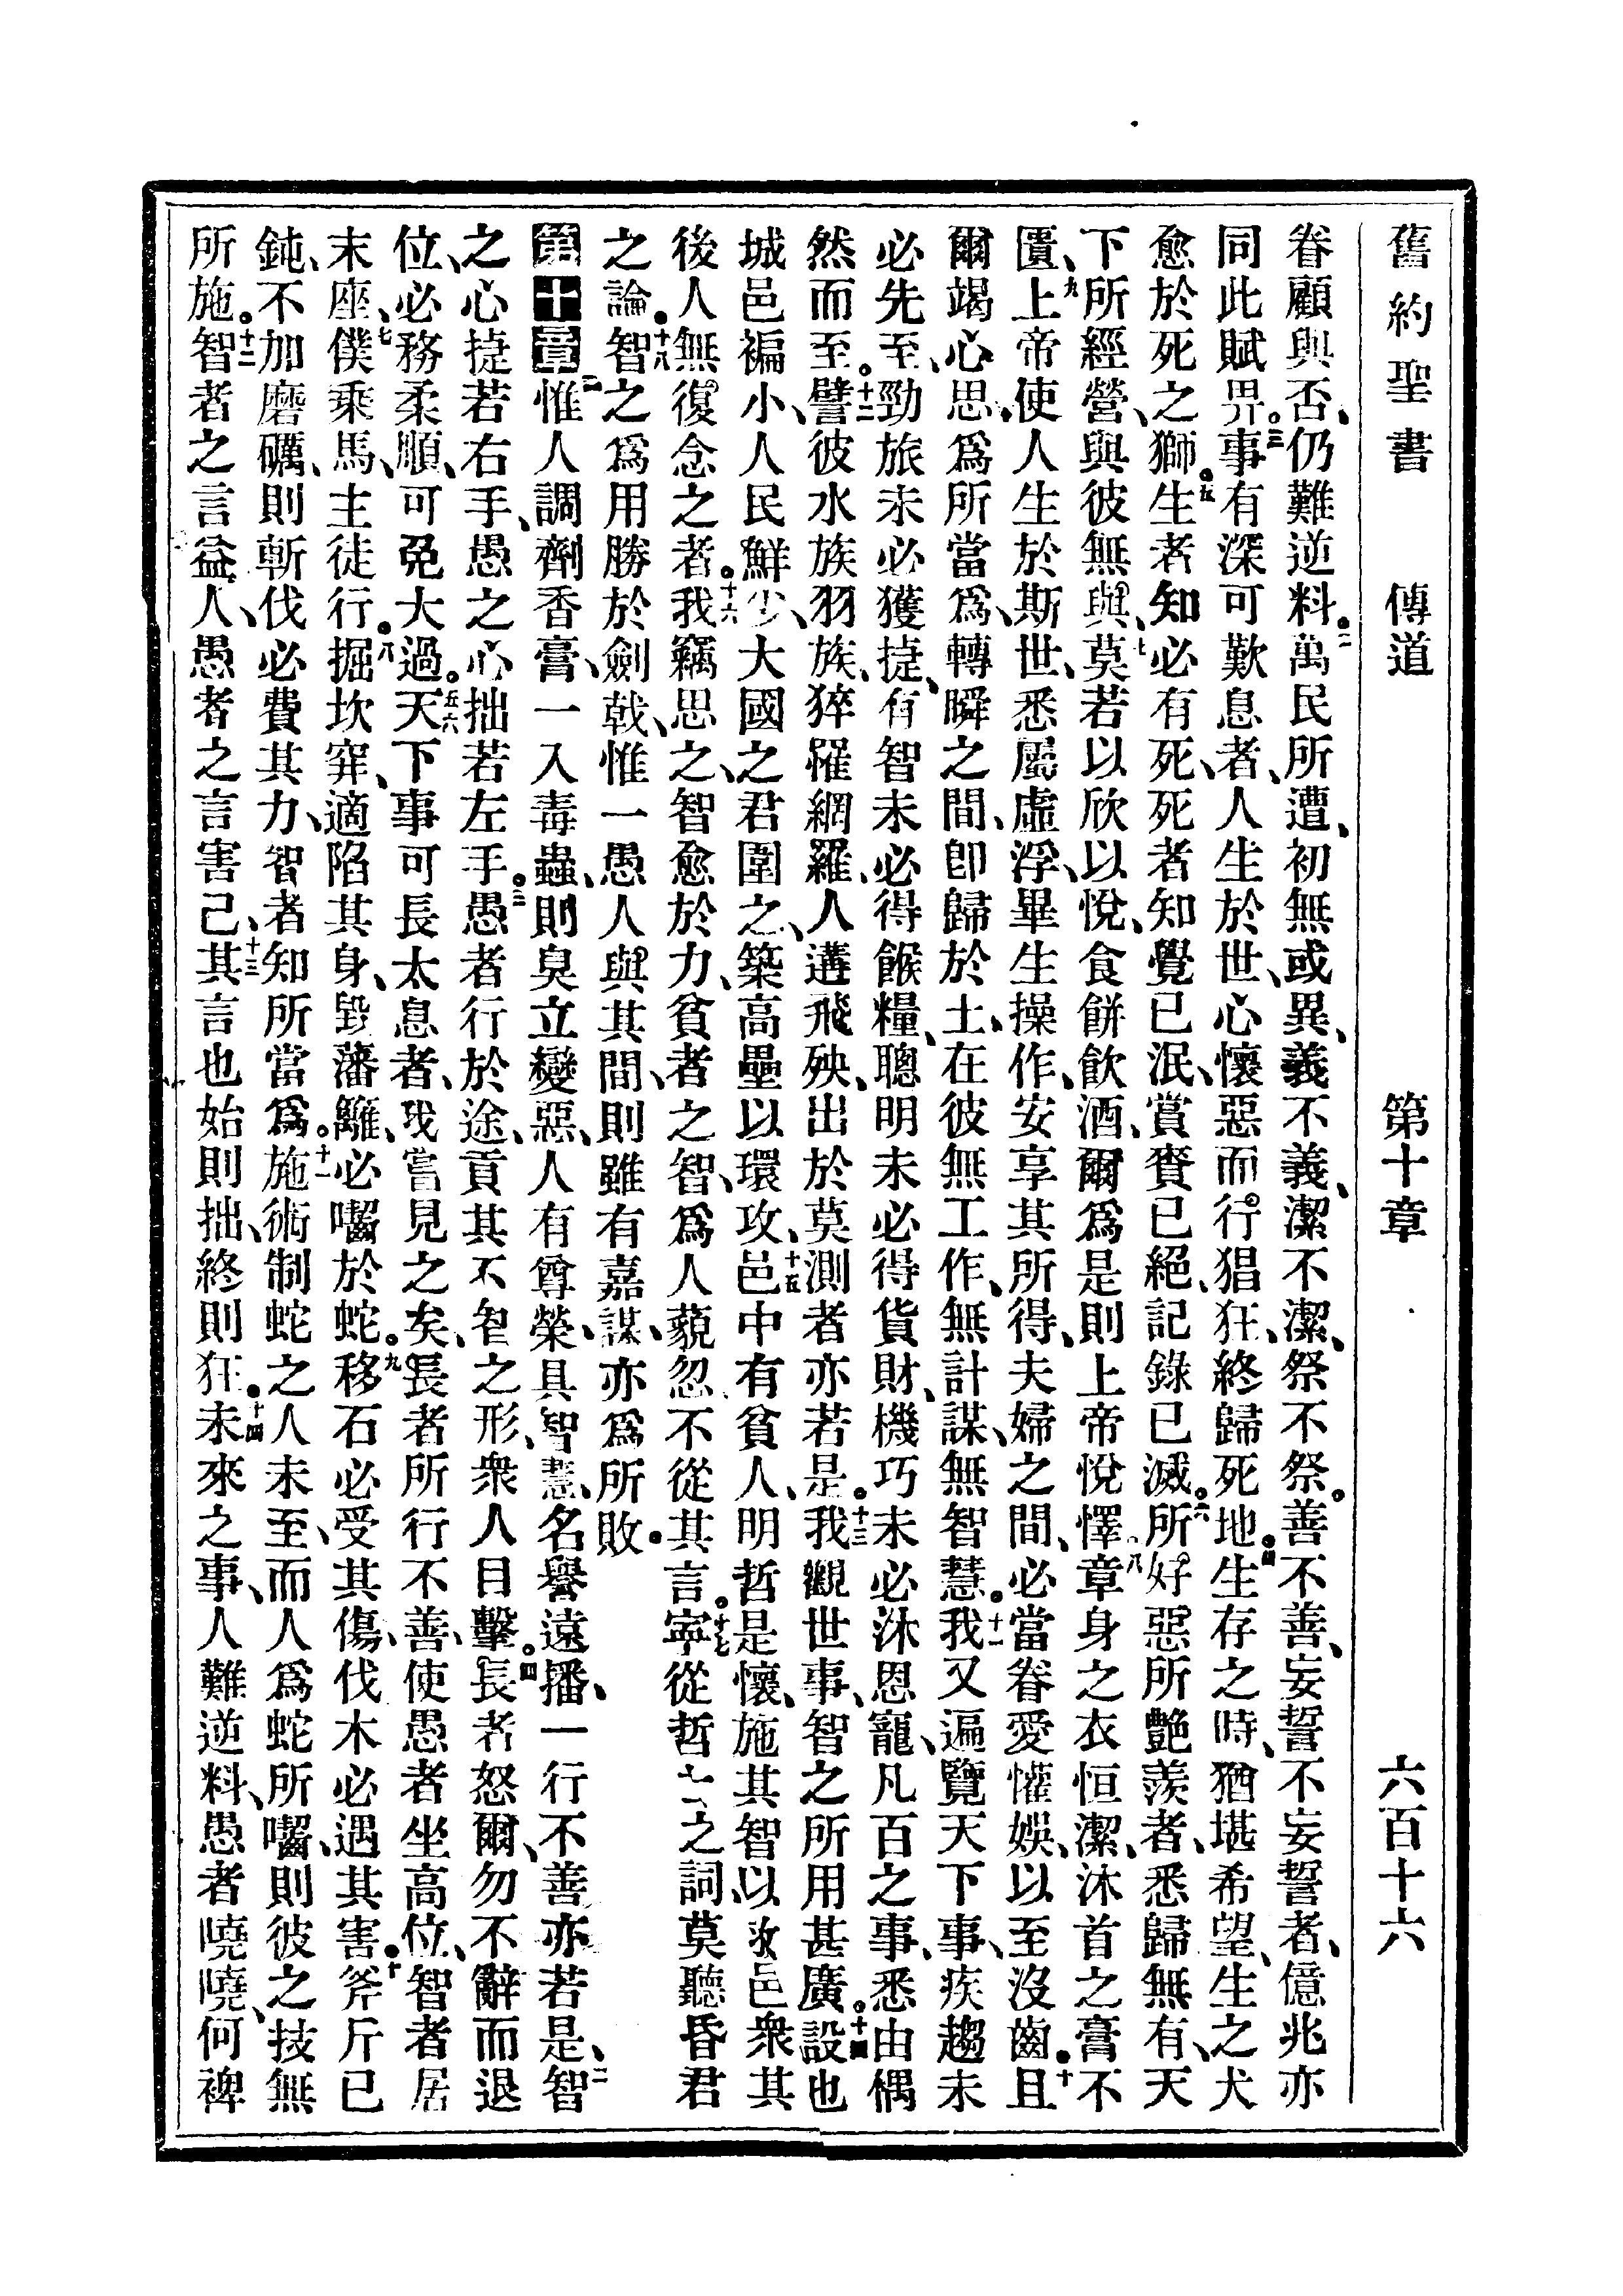 舊約聖書 傳道 第十章 六百十六
眷顧與否、仍難逆料。二萬民所遭、初無或異、義不義、潔不潔、祭不祭。善不善、妄誓不妄誓者、億兆亦
同此賦畀。三事有深可歎息者、人生於世、心懷惡而行猖狂、終歸死地。四生存之時、猶堪希望、生之犬
愈於死之獅。五生者知必有死、死者知覺已泯、賞賚已絕、記錄已滅。六所好惡所艷羨者、悉歸無有、天
下所經營、與彼無與、七莫若以欣以悅、食餅飲酒、爾爲是則上帝悅懌、八章身之衣恒潔、沐首之膏不
匱、九上帝使人生於斯世、悉屬虛浮、畢生操作、安享其所得、夫婦之間、必當眷愛懽娛、以至沒齒。十且
爾竭心思、爲所當爲、轉瞬之間、卽歸於土、在彼無工作、無計謀、無智慧。十一我又遍覽天下事、疾趨未
必先至、勁旅未必獲捷、有智未必得餱糧、聰明未必得貨財、機巧未必沐恩寵、凡百之事、悉由偶
然而至。十二譬彼水族羽族、猝罹網羅、人遘飛殃、出於莫測者亦若是。十三我觀世事、智之所用甚廣。十四設也
城邑褊小、人民鮮少、大國之君圍之、築高壘以環攻、十五邑中有貧人、明哲是懷、施其智以救邑、衆其
後人無復念之者。十六我竊思之、智愈於力、貧者之智、爲人藐忽、不從其言。十七寧從哲之詞、莫聽昏君
之論。十八智之爲用勝於劍戟、惟一愚人與其間、則雖有嘉謀、亦爲所敗。
第十章 一惟人調劑香膏、一入毒蟲、則臭立變惡、人有尊榮、具智慧、名譽遠播、一行不善亦若是、二智
之心捷若右手、愚之心拙若左手。三愚者行於途、貢其不智之形、衆人目擊。四長者怒爾、勿不辭而退
位、必務柔順、可免大過。五六天下事可長太息者、我嘗見之矣、長者所行不善、使愚者坐高位、智者居
末座、七僕乘馬、主徒行。八掘坎穽、適陷其身、毀藩籬、必囓於蛇。九移石必受其傷、伐木必遇其害。十斧斤已
鈍、不加磨礪、則斬伐必費其力、智者知所當爲。十一施術制蛇之人未至、而人爲蛇所囓、則彼之技無
所施。十二智者之言益人、愚者之言害己、十三其言也始則拙、終則狂。十四未來之事、人難逆料、愚者嘵嘵、何裨